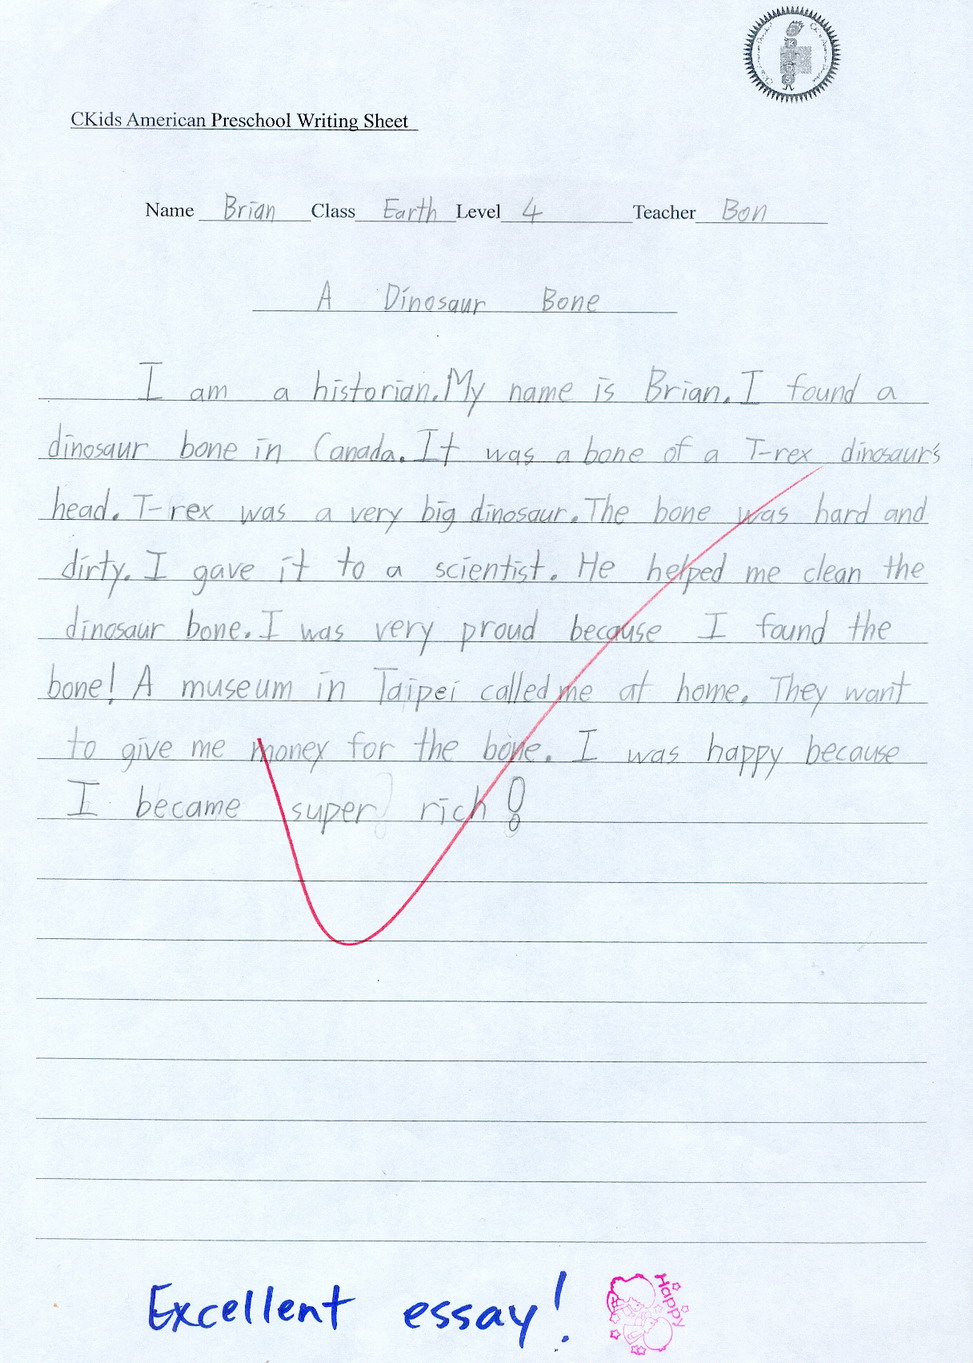 CKids American Preschool Writing Sheet
Name Brian Class Earth Level 4 Teacher Bon
A Dinosaur Bone
I am a historian. My name is Brian. I found a
dinosaur bone in Canada. It was a bone of a T-rex dinosaur's
head. T-rex was a very big dinosaur. The bone was hard and
dirty. I gave it to a scientist. He helped me clean the
dinosaur bone. I was very proud because I found the
bone! A museum in Taipei called me at home. They want
to give me money for the bone. I was happy because
I became super rich!
Excellent essay!
Happy